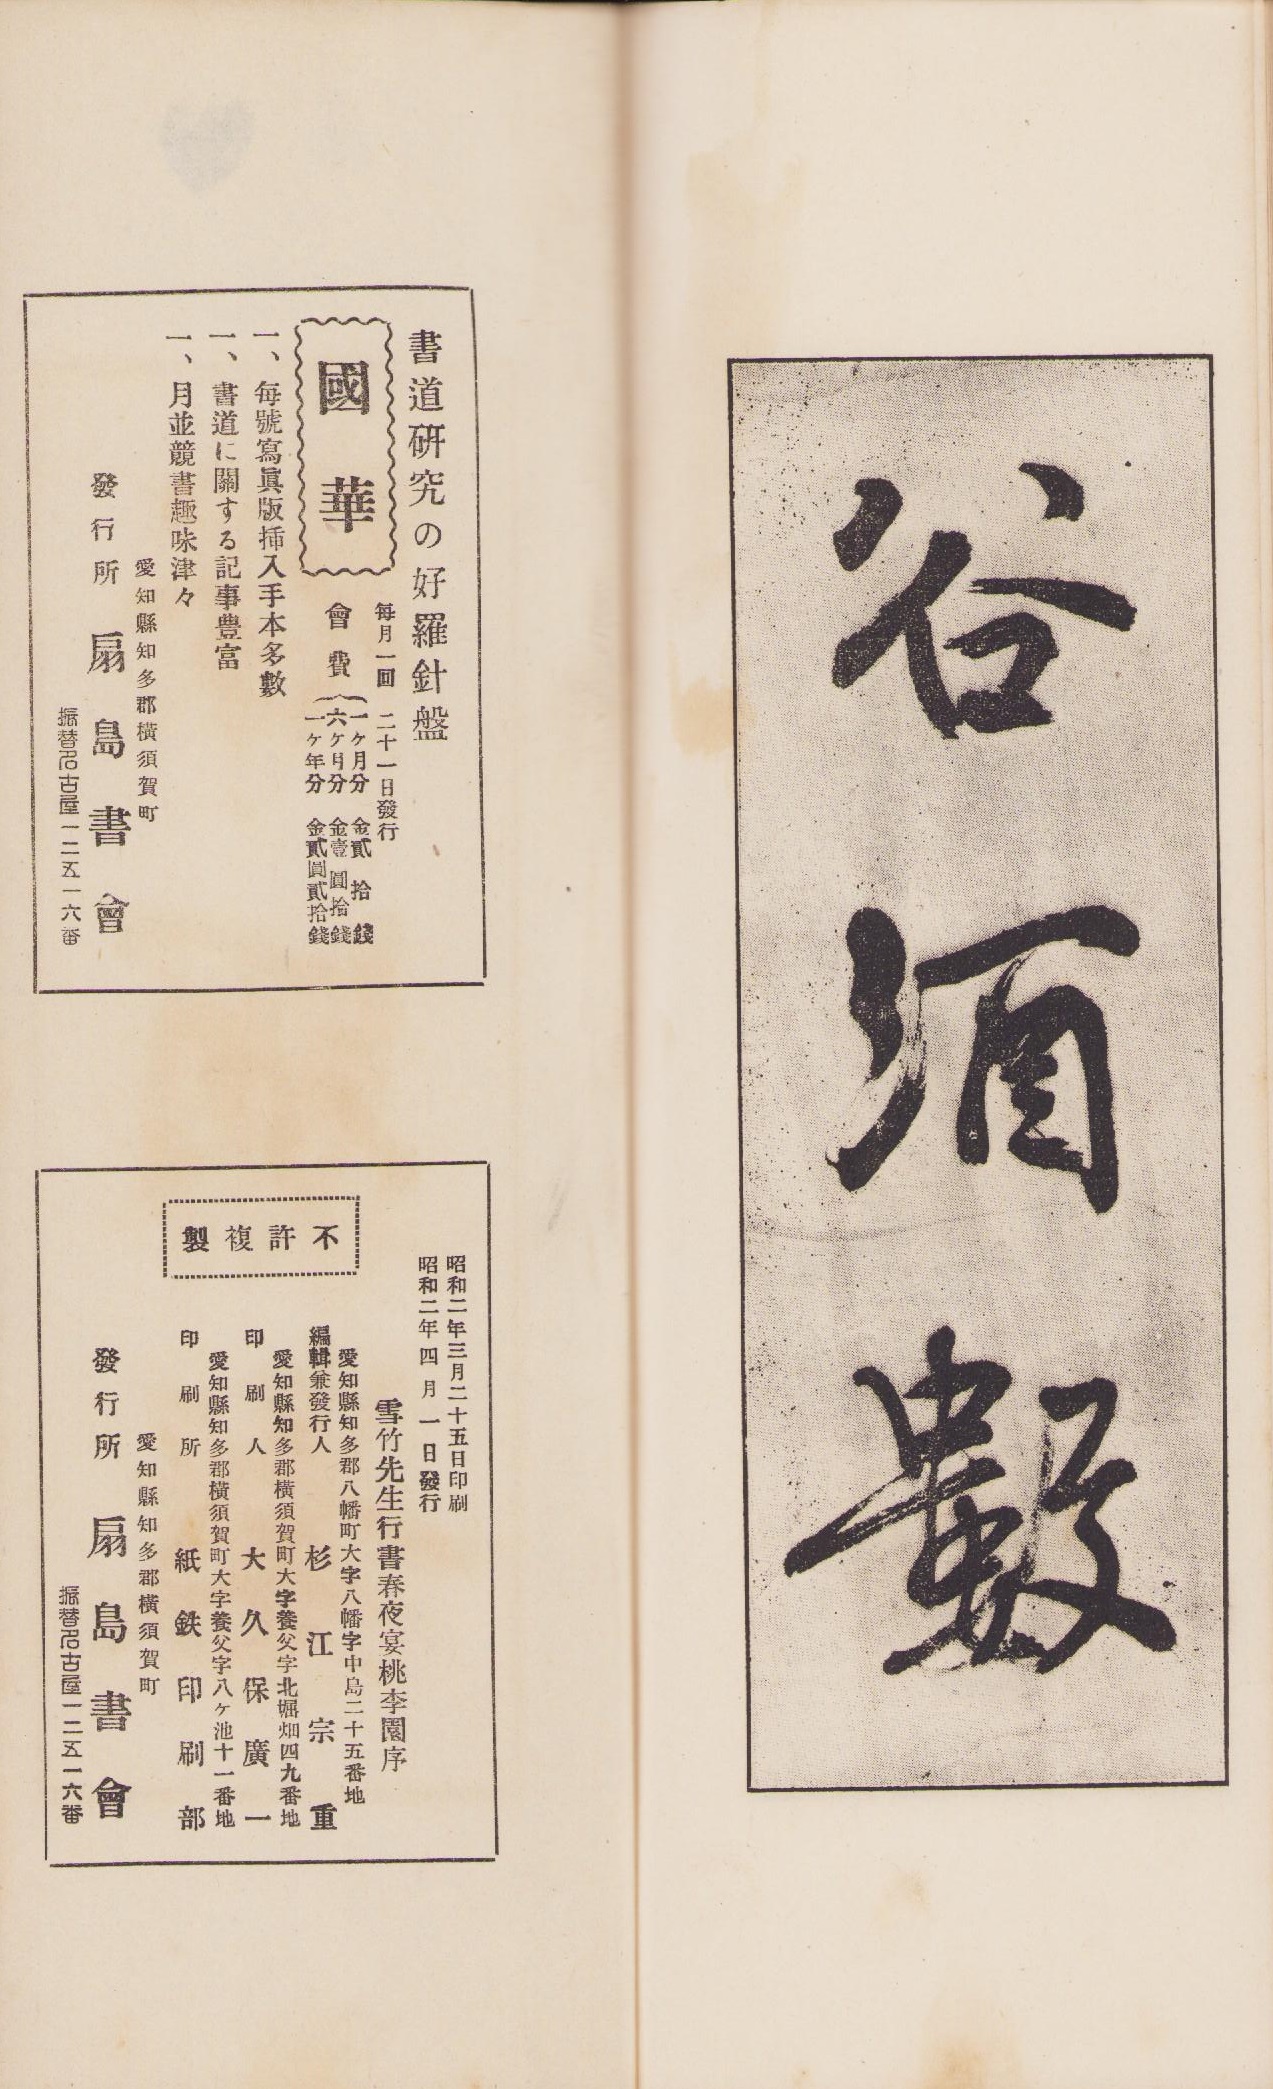 谷酒數
書道研究の好羅針盤
國華
每月一回 二十一日發行
會費
一ヶ月分 金貳拾錢
六ヶ月分 金壹圓拾錢
一ヶ年分 金貳圓貳拾錢
一、每號寫眞版揷入手本多數
一、書道に關する記事豊富
一、月並競書趣味津々
愛知縣知多郡橫須賀町
發行所 扇島書會
振替名古屋一二五一六番
昭和二年三月二十五日印刷
昭和二年四月一日發行
雪竹先生行書春夜宴桃李園序
不許複製
愛知縣知多郡八幡町大字八幡字中島二十五番地
編輯兼發行人 杉江宗重
愛知縣知多郡橫須賀町大字養父字北堀畑四九番地
印刷人 大久保廣一
愛知縣知多郡橫須賀町大字養父字八ヶ池十一番地
印刷所 紙鉄印刷部
愛知縣知多郡橫須賀町
發行所 扇島書會
振替名古屋一二五一六番